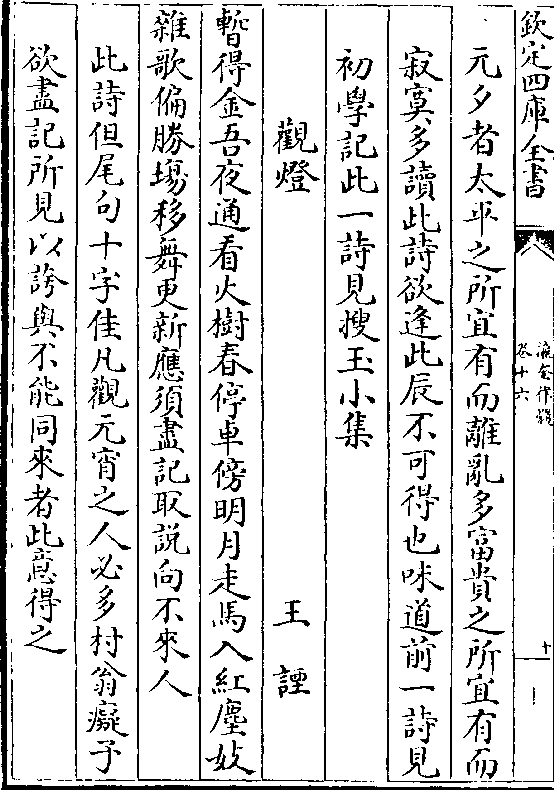 欽定四庫全書
瀛奎律髓
卷十六
十
元夕者太平之所宜有而離亂多富貴之所宜有而
寂寞多讀此詩欲逢此辰不可得也味道前一詩見
初學記此一詩見搜玉小集
觀燈 王諲
暫得金吾夜通看火樹春停車傍明月走馬入紅塵妓
雜歌偏勝塲移舞更新應須盡記取說向不來人
此詩但尾句十字佳凡觀元宵之人必多村翁癡子
欲盡記所見以誇與不能同來者此意得之